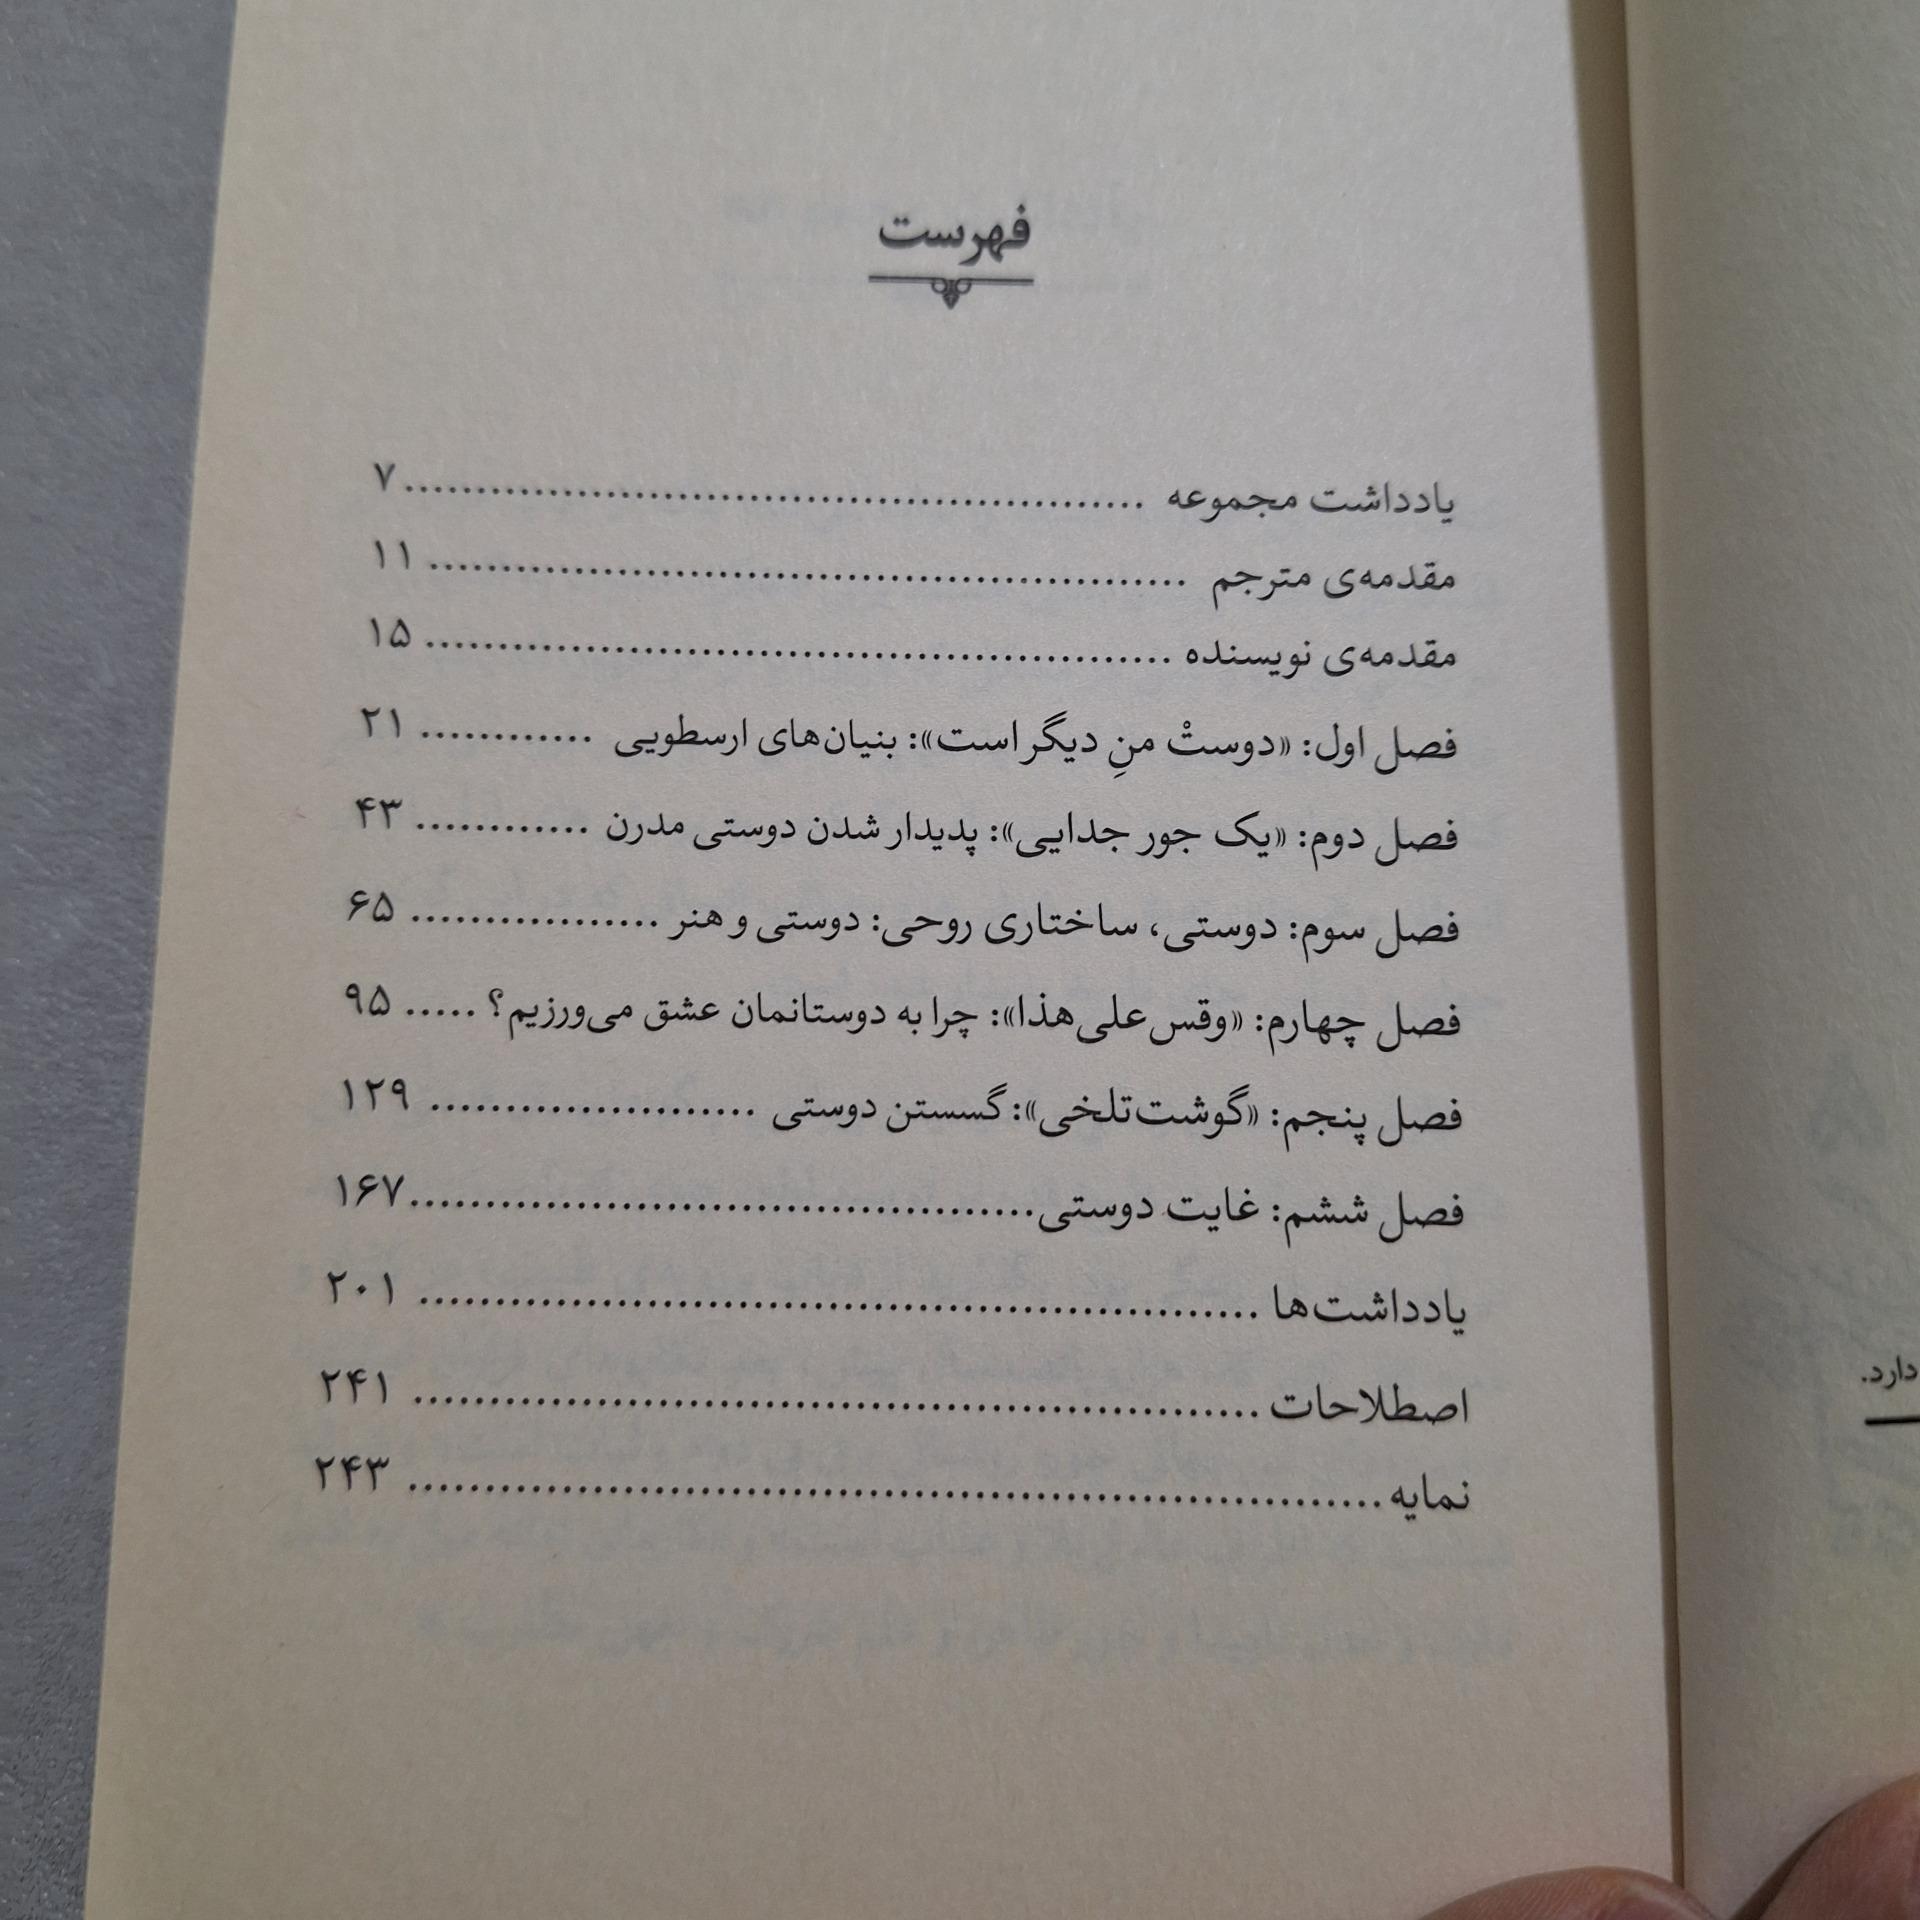 فهرست
یادداشت مجموعه ........................................................ ۷
مقدمه‌ی مترجم ........................................................ ۱۱
مقدمه‌ی نویسنده ........................................................ ۱۵
فصل اول: «دوستْ منِ دیگر است»: بنیان‌های ارسطویی ............ ۲۱
فصل دوم: «یک جور جدایی»: پدیدار شدن دوستی مدرن ............ ۴۳
فصل سوم: دوستی، ساختاری روحی: دوستی و هنر ................. ۶۵
فصل چهارم: «وقس علی هذا»: چرا به دوستانمان عشق می‌ورزیم؟ ..... ۹۵
فصل پنجم: «گوشت‌تلخی»: گسستن دوستی ...................... ۱۲۹
فصل ششم: غایت دوستی .......................................... ۱۶۷
یادداشت‌ها ........................................................ ۲۰۱
اصطلاحات ........................................................ ۲۴۱
نمایه ................................................................ ۲۴۳
دارد.